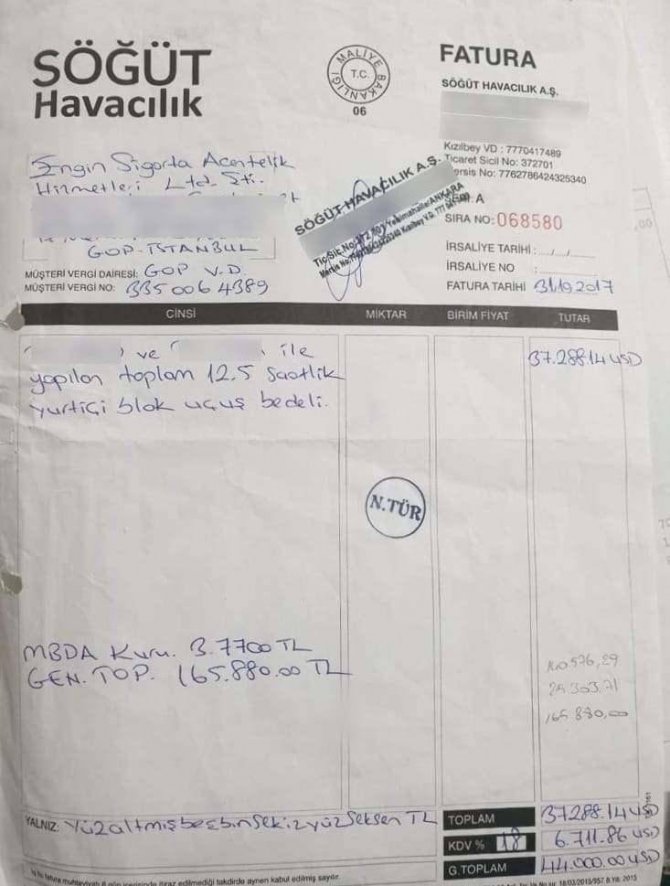 SÖĞÜT
Havacılık
MALİYE BAKANLIĞI
T.C.
06
FATURA
SÖĞÜT HAVACILIK A.Ş.
Kızılbey VD : 7770417489
Ticaret Sicil No: 372701
Mersis No: 7762786424325340
Engin Sigorta Acentelik
Hizmetleri Ltd. Şti.
GOP-İSTANBUL
SÖĞÜT HAVACILIK A.Ş.
SERİ A
SIRA NO: 068580
İRSALİYE TARİHİ : ../../
İRSALİYE NO :
FATURA TARİHİ 31.10.2017
MÜŞTERİ VERGİ DAİRESİ: GOP V.D
MÜŞTERİ VERGİ NO: 335 006 4389
CİNSİ MİKTAR BİRİM FİYAT TUTAR
ve ile 37.288.14 USD
yapılan toplam 12.5 saatlik
yurtiçi blok uçuş bedeli.
N.TÜR
MBDA Kuru. 3.7700 TL
GEN. TOP. 165.880.00 TL
140 576,29
25 303.71
165 880,00
YALNIZ: Yüzaltmışbeşbinsekizyüzseksen TL
TOPLAM 37.288.14 USD
KDV % 18 6.711.86 USD
G.TOPLAM 44.000.00 USD